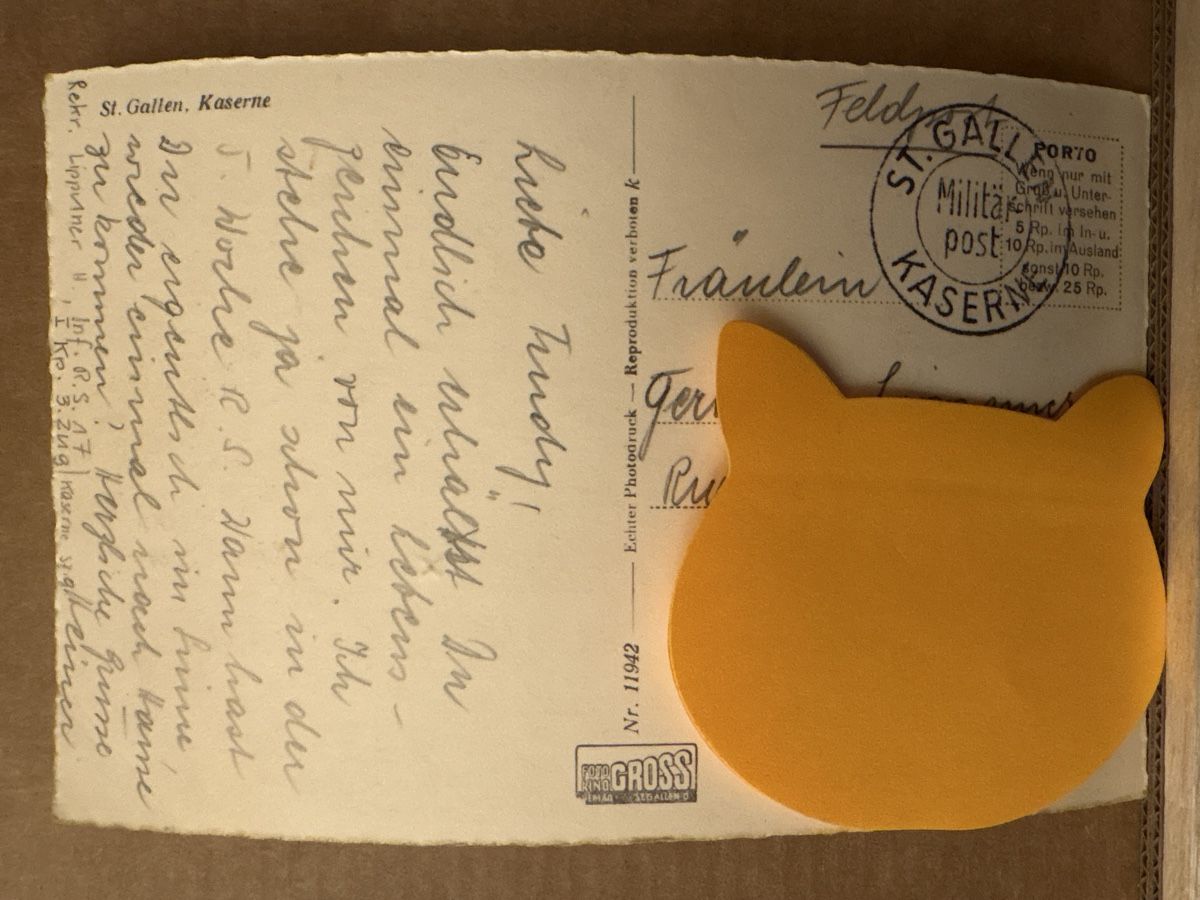 St. Gallen, Kaserne
Liebe Trudy!
Endlich erhältst Du
einmal ein Lebens-
zeichen von mir. Ich
stehe ja schon in der
5. Woche R.S. Wann hast
Du eigentlich im Sinne,
wieder einmal nach Hause
zu kommen? Herzliche Grüsse
Heiner
Rekr. Lippuner H., Inf. R.S. 17
I Kp. 3. Zug Kaserne
Nr. 11942 Echter Photodruck — Reproduktion verboten k
FOTO
KINO GROSS
ST. GALLEN
Feldpost
ST. GALLEN
Militär
post
KASERNE
PORTO
Wenn nur mit
Gruß u. Unter-
schrift versehen
5 Rp. im In- u.
10 Rp. im Ausland
sonst 10 Rp.
bezw. 25 Rp.
Fräulein